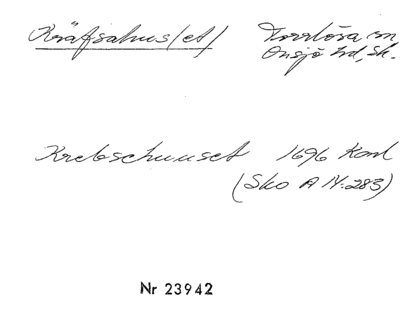 Kräfsahus(et) Torrlösa sn
Onsjö hd, Sk.
Krebschuuset 1696 Konl
(Sko A IV:283)
Nr 23942